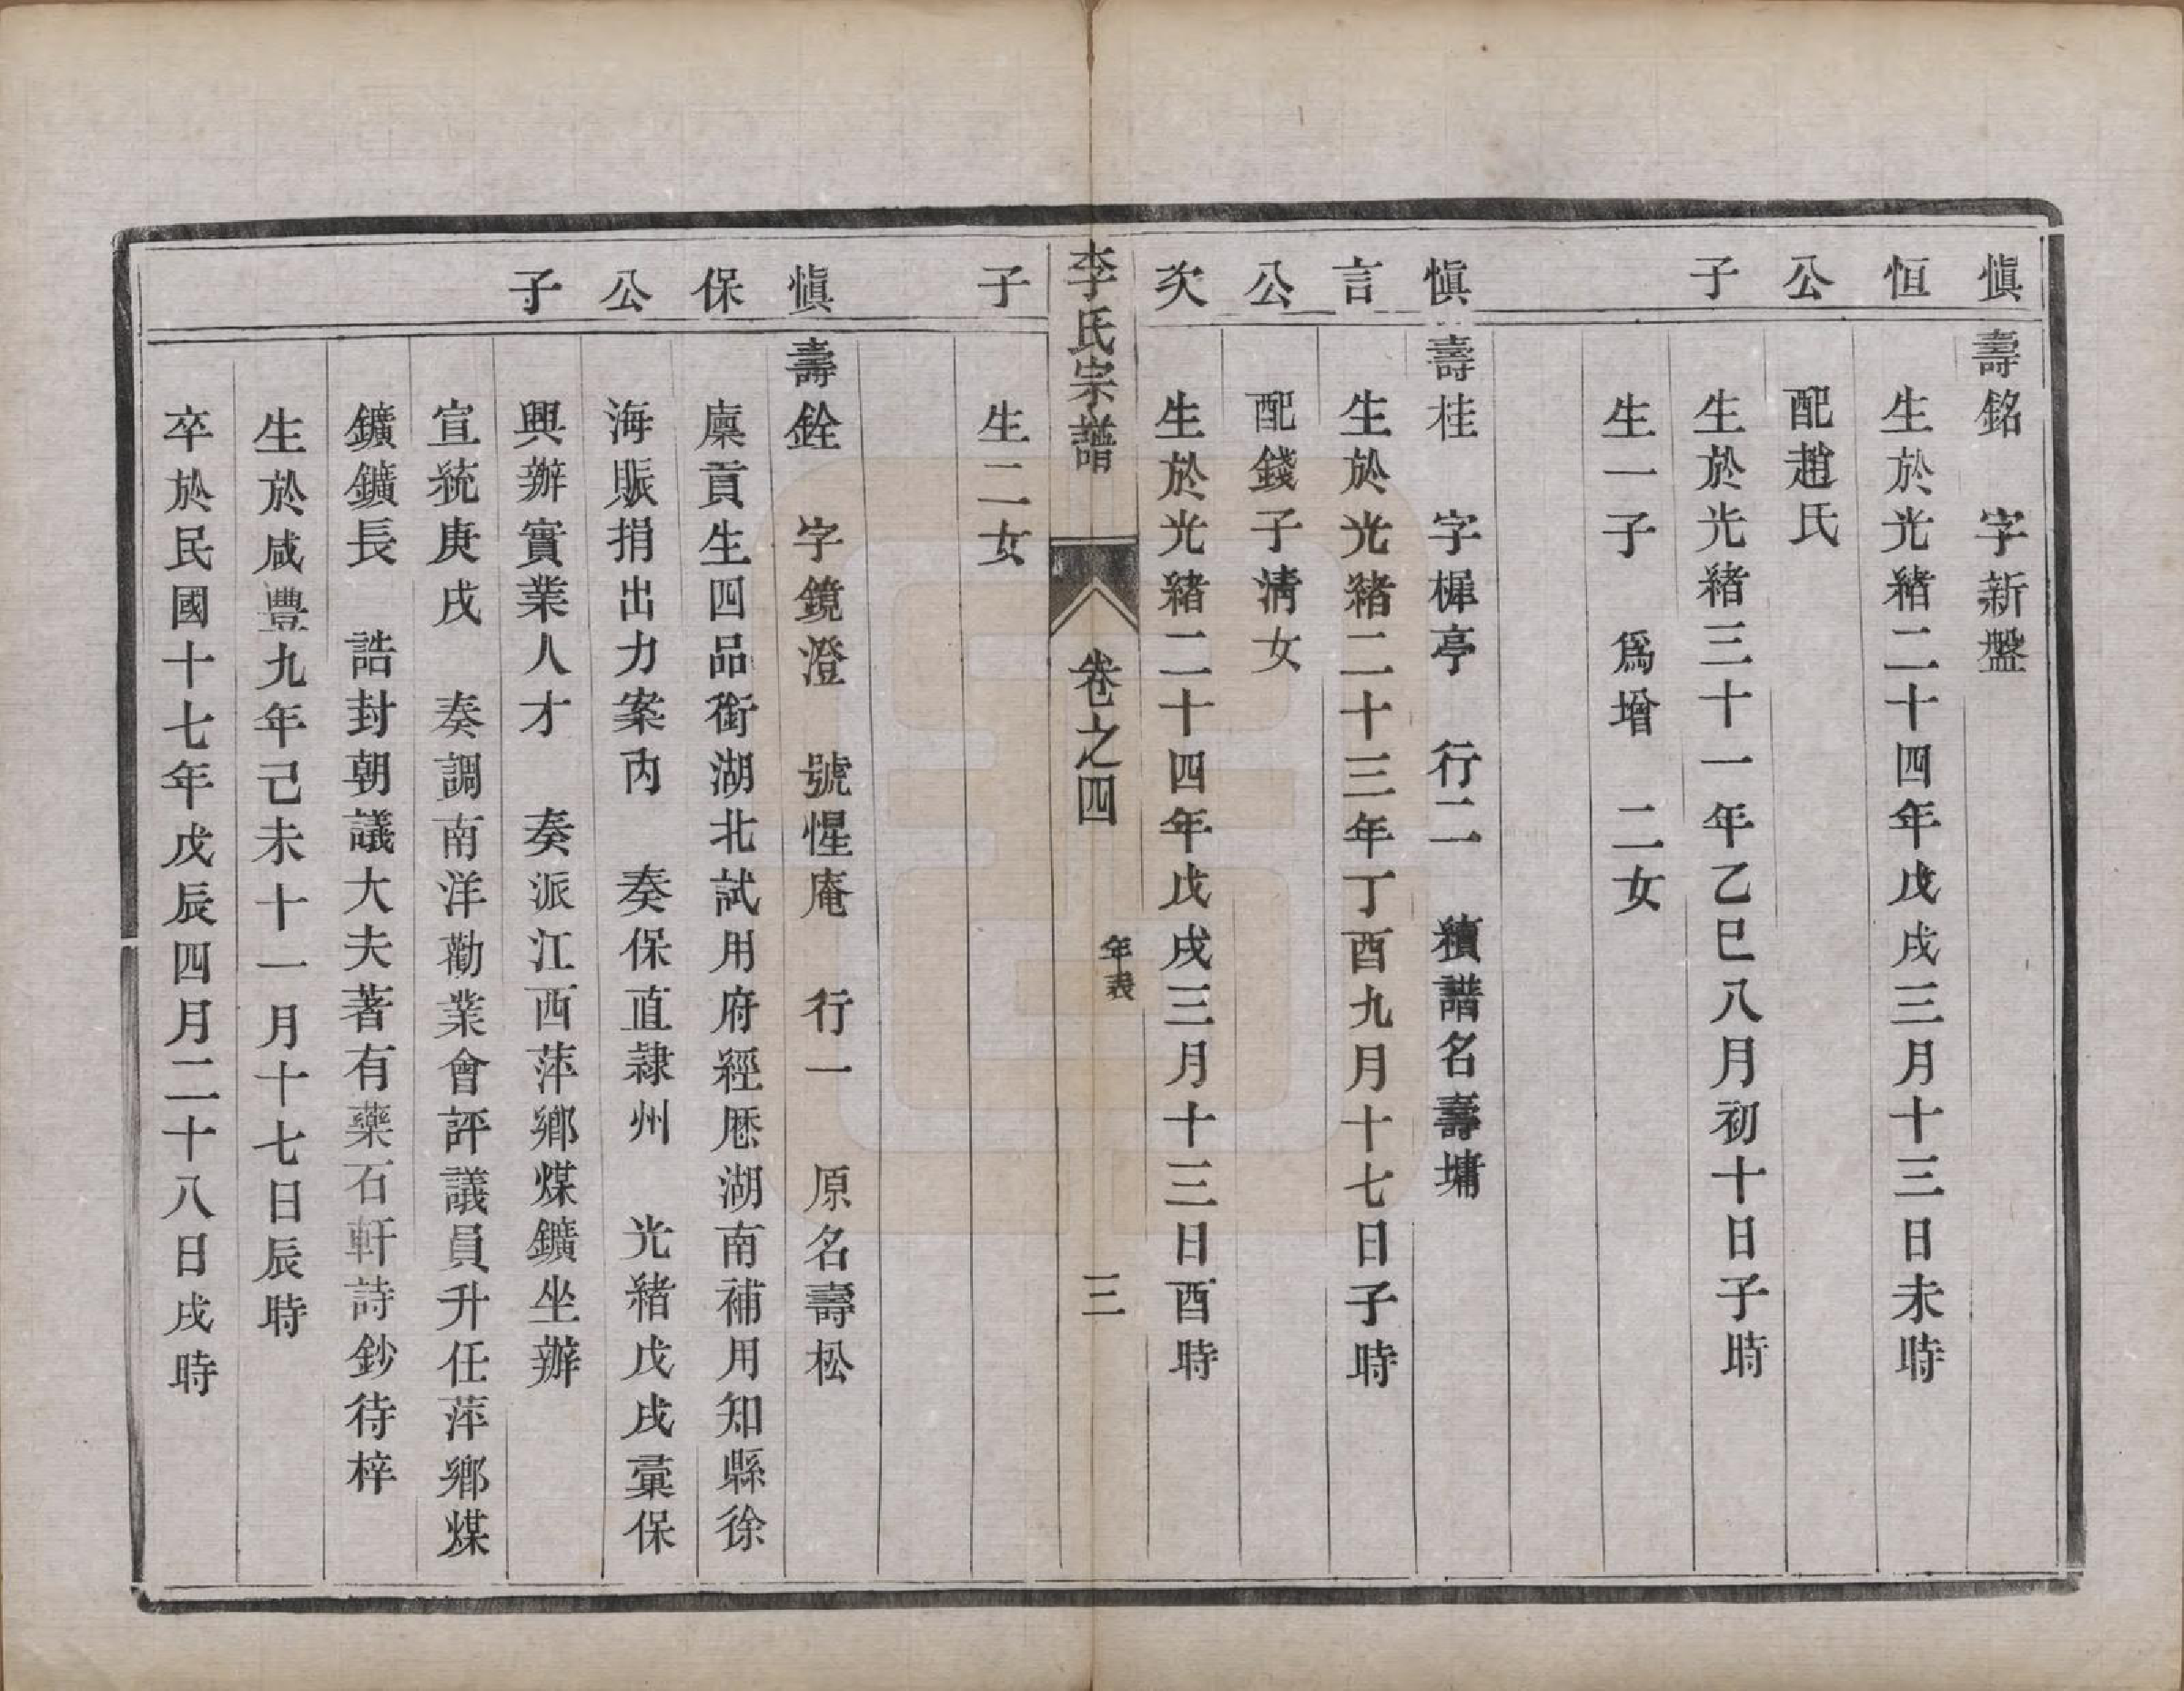 愼恒公子
壽銘　字新盤
生於光緒二十四年戊戌三月十三日未時
配趙氏
生於光緒三十一年乙巳八月初十日子時
生一子　爲增　二女
愼言公次子
壽桂　字樨亭　行二　續譜名壽墉
生於光緒二十三年丁酉九月十七日子時
配錢子淸女
生於光緒二十四年戊戌三月十三日酉時
李氏宗譜　卷之四　年表　三
生二女
愼保公子
壽銓　字鏡澄　號惺庵　行一　原名壽松
廩貢生四品銜湖北試用府經歷湖南補用知縣徐
海賑捐出力案內　奏保直隸州　光緒戊戌彙保
興辦實業人才　奏派江西萍鄉煤鑛坐辦
宣統庚戌　奏調南洋勸業會評議員升任萍鄉煤
鑛鑛長　誥封朝議大夫著有藥石軒詩鈔待梓
生於咸豐九年己未十一月十七日辰時
卒於民國十七年戊辰四月二十八日戌時